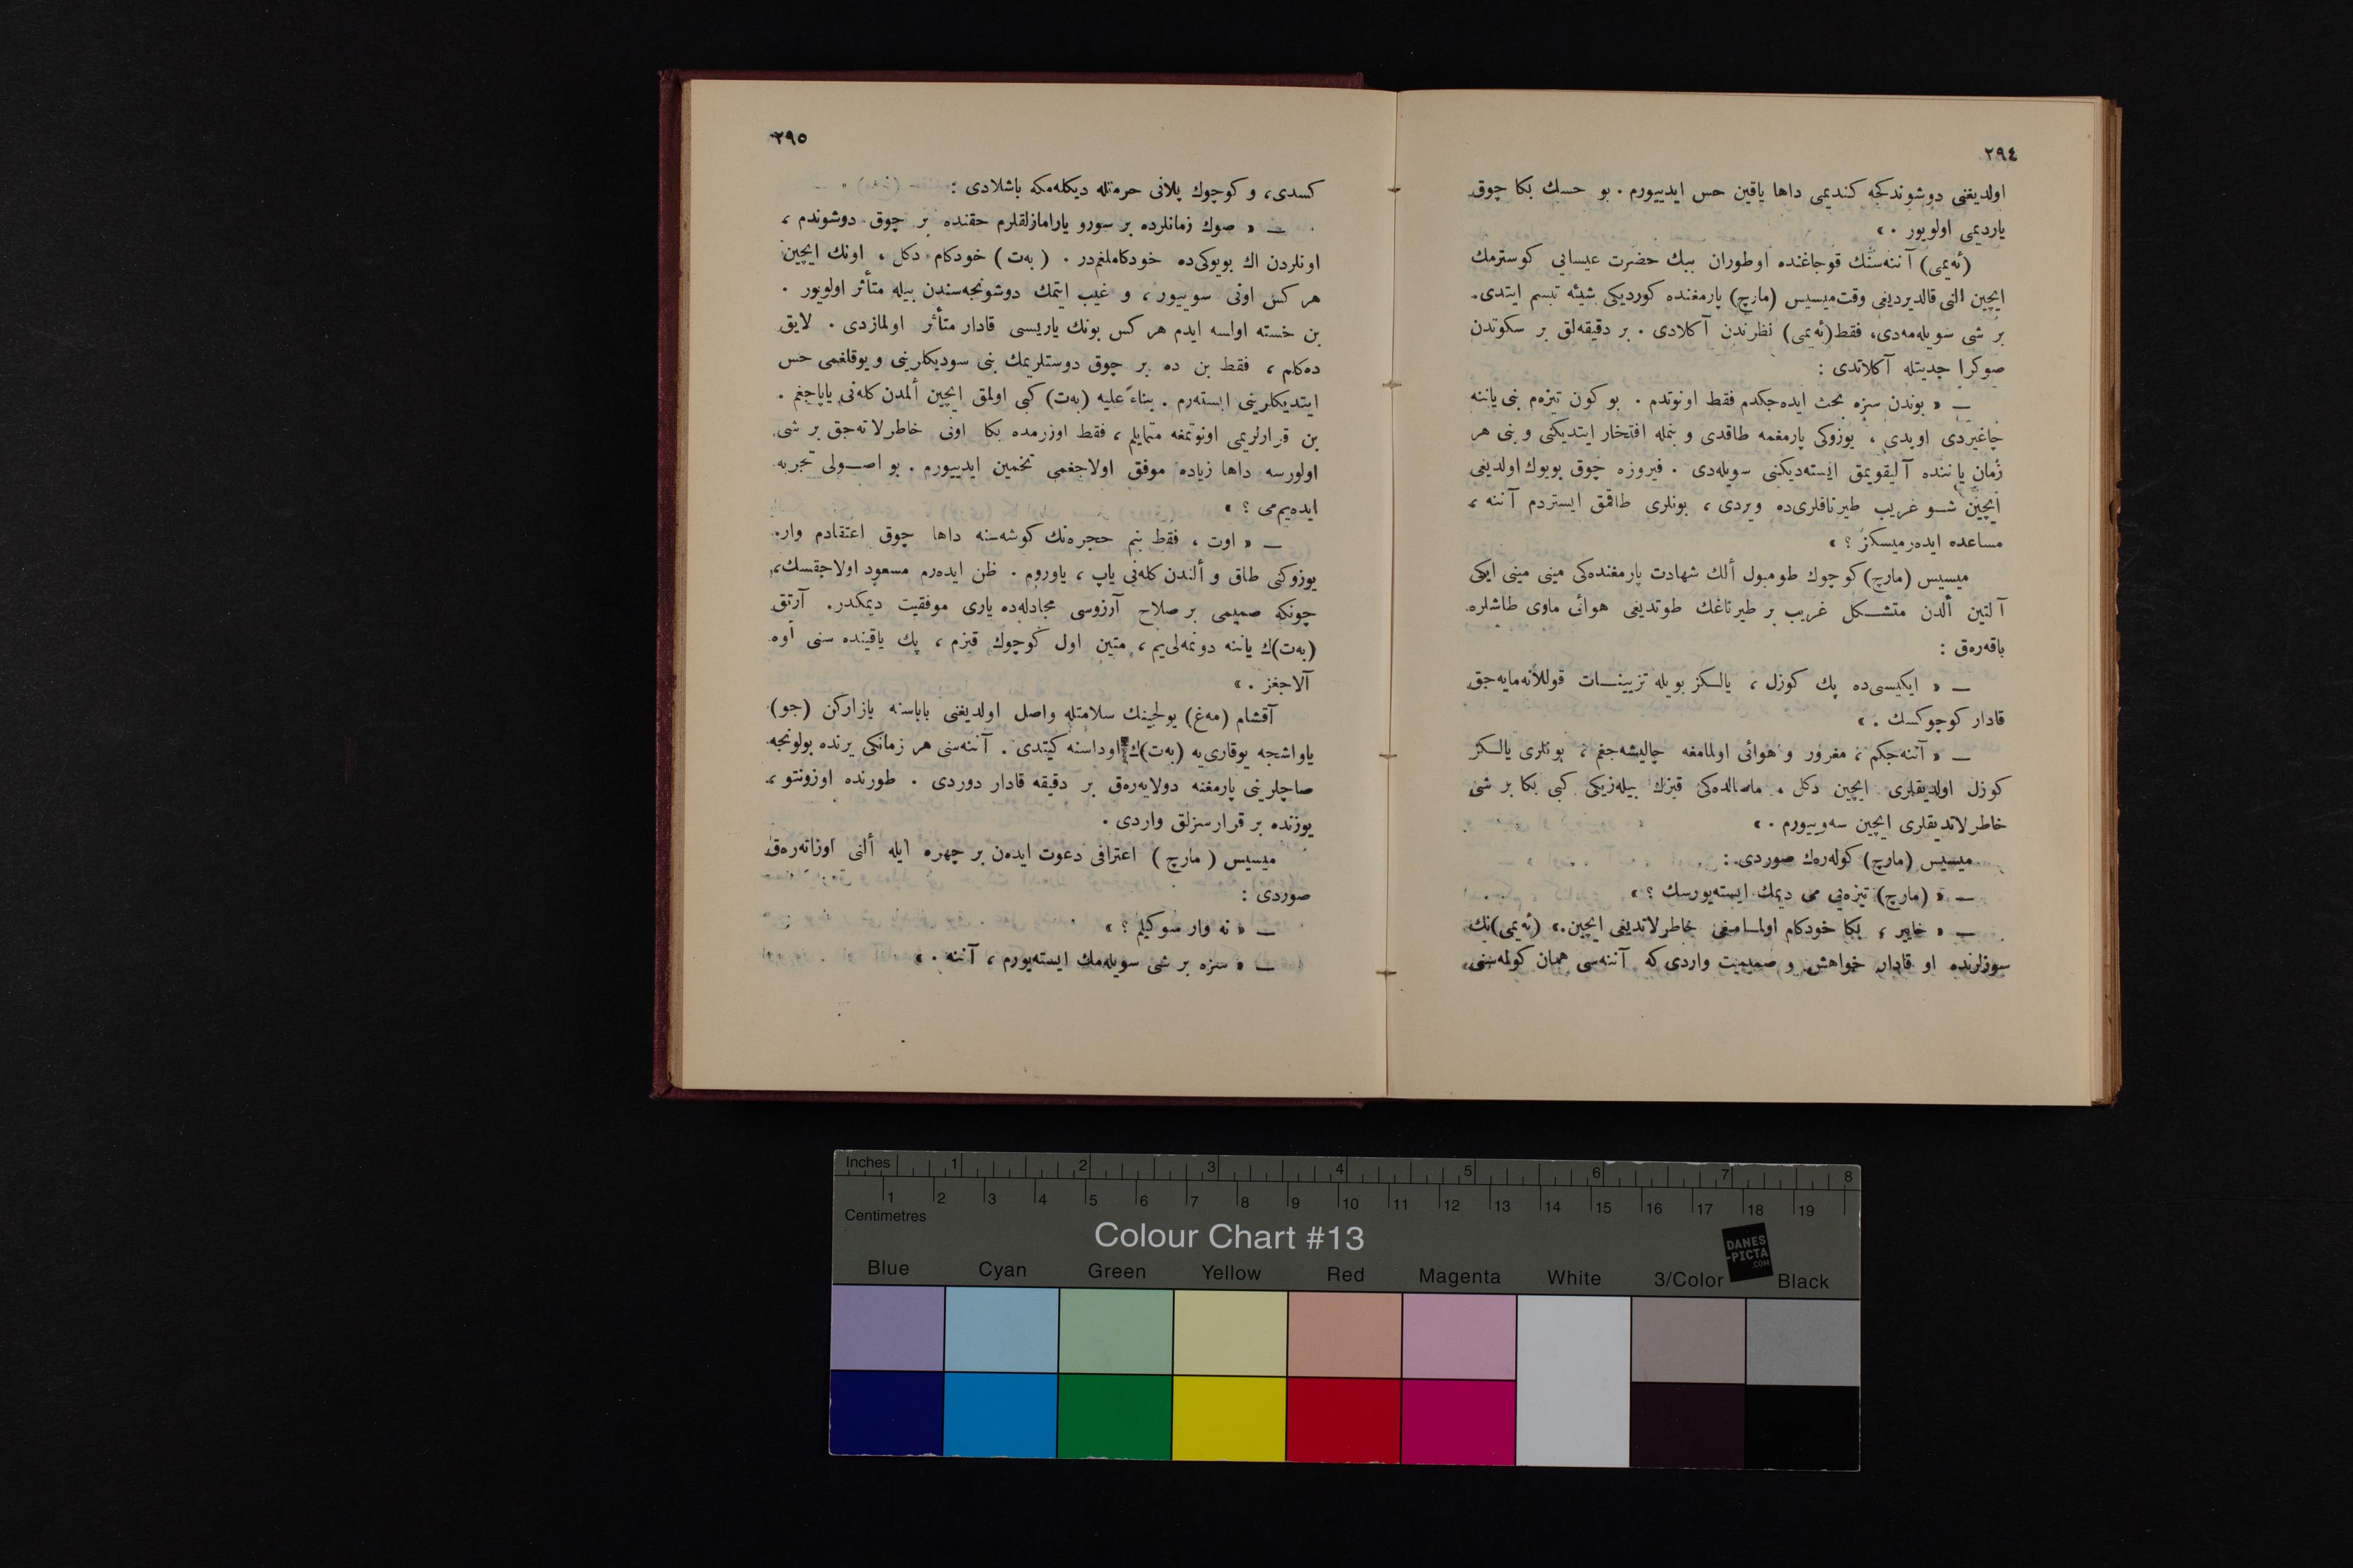 ٢٩٤
اولدیغنی دوشوندکجه کندیمی داها یاقین حس ایدییورم . بو حسك بکا چوق
یاردیمی اولویور . »
(ئەیمی) آننه‌سنك قوجاغنده اوطوران ببك حضرت عیسایی کوسترمك
ایچین النی قالدیردیغی وقت میسیس (مارچ) پارمغنده کوردیکی شیئه تبسم ایتدی.
بر شی سویله‌مه‌دی، فقط (ئەیمی) نظرندن آکلادی . بر دقیقه‌لق بر سکوتدن
صوکرا جدیتله آکلاتدی :
— « بوندن سزه بحث ایده‌جکدم فقط اونوتدم . بو کون تیزه‌م بنی یاننه
چاغیردی اوپدی ، یوزوکی پارمغمه طاقدی و بنمله افتخار ایتدیکنی و بنی هر
زمان یاننده آلیقویمق ایسته‌دیکنی سویله‌دی . فیروزه چوق بویوك اولدیغی
ایچین شو غریب طیرناقلری‌ده ویردی ، بونلری طاقمق ایستردم آننه ،
مساعده ایده‌رمیسکز ؟ »
میسیس (مارچ) کوچوك طومبول ألك شهادت پارمغنده‌کی مینی مینی ایکی
آلتین ألدن متشکل غریب بر طیرناغك طوتدیغی هوائی ماوی طاشلره
باقه‌رەق :
— « ایکیسی‌ده پك کوزل ، یالکز بویله تزیینات قوللانه‌مایه‌جق
قادار کوچوکسك . »
— « آننه‌جکم ، مغرور و هوائی اولمامغه چالیشه‌جغم ، بونلری یالکز
کوزل اولدیقلری ایچین دکل ، ماصالده‌کی قیزك بیله‌زیکی کبی بکا بر شی
خاطرلاتدیقلری ایچین سه‌وییورم . »
میسیس (مارچ) کوله‌رەك صوردی :
— « (مارچ) تیزه‌یی می دیمك ایسته‌یورسك ؟ »
— « خایر ، بکا خودکام اولمامغی خاطرلاتدیغی ایچین.» (ئەیمی)نك
سوزلرنده او قادار خواهش و صمیمیت واردی که آننه‌سی همان کولمه‌سنی
٢٩٥
کسدی، و کوچوك پلانی حرمتله دیکله‌مکه باشلادی :
— « صوك زمانلرده بر سورو یارامازلقلرم حقنده بر چوق دوشوندم ،
اونلردن اك بویوکی‌ده خودکاملغم‌در . (بەت) خودکام دکل ، اونك ایچین
هر کس اونی سوییور ، و غیب ایتمك دوشونجه‌سندن بیله متأثر اولویور .
بن خسته اولسه ایدم هر کس بونك یاریسی قادار متأثر اولمازدی . لایق
ده‌کلم ، فقط بن ده بر چوق دوستلریمك بنی سودیکلرینی و یوقلغمی حس
ایتدیکلرینی ایسته‌رم . بناءً علیه (بەت) کبی اولمق ایچین ألمدن کله‌نی یاپاجغم .
بن قرارلریمی اونوتمغه متمایلم ، فقط اوزرمده بکا اونی خاطرلاته‌جق بر شی
اولورسه داها زیاده موفق اولاجغمی تخمین ایدییورم . بو اصولی تجربه
ایده‌یم‌می ؟ »
— « اوت ، فقط بنم حجره‌نك کوشه‌سنه داها چوق اعتقادم وار.
یوزوکنی طاق و ألندن کله‌نی یاپ ، یاوروم . ظن ایده‌رم مسعود اولاجقسك،
چونکه صمیمی بر صلاح آرزوسی مجادله‌ده یاری موفقیت دیمکدر. آرتق
(بەت)ك یاننه دونمه‌لی‌یم ، متین اول کوچوك قیزم ، پك یاقینده سنی اوه
آلاجغز . »
آقشام (مەغ) یولجینك سلامتله واصل اولدیغنی باباسنه یازارکن (جو)
یاواشجه یوقاری‌یه (بەت)ك اوداسنه کیتدی . آننه‌سنی هر زمانکی یرنده بولونجه
صاچلرینی پارمغنه دولایه‌رەق بر دقیقه قادار دوردی . طورنده اوزونتو ،
یوزنده بر قرارسزلق واردی .
میسیس (مارچ) اعترافی دعوت ایدەن بر چهره ایله ألنی اوزاته‌رەق
صوردی :
— « نه وار سوکیلم ؟ »
— « سزه بر شی سویله‌مك ایسته‌یورم ، آننه . »
Inches 1 2 3 4 5 6 7 8
1 2 3 4 5 6 7 8 9 10 11 12 13 14 15 16 17 18 19
Centimetres
Colour Chart #13
DANES
-PICTA
.COM
Blue Cyan Green Yellow Red Magenta White 3/Color Black